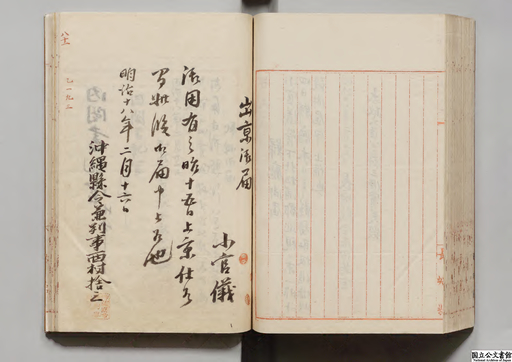 出京御届
小官儀
御用有之昨十五日上京仕候
間此段御届申上候也
明治十八年二月十六日
沖縄縣令兼判事西村捨三
国立公文書館
National Archives of Japan